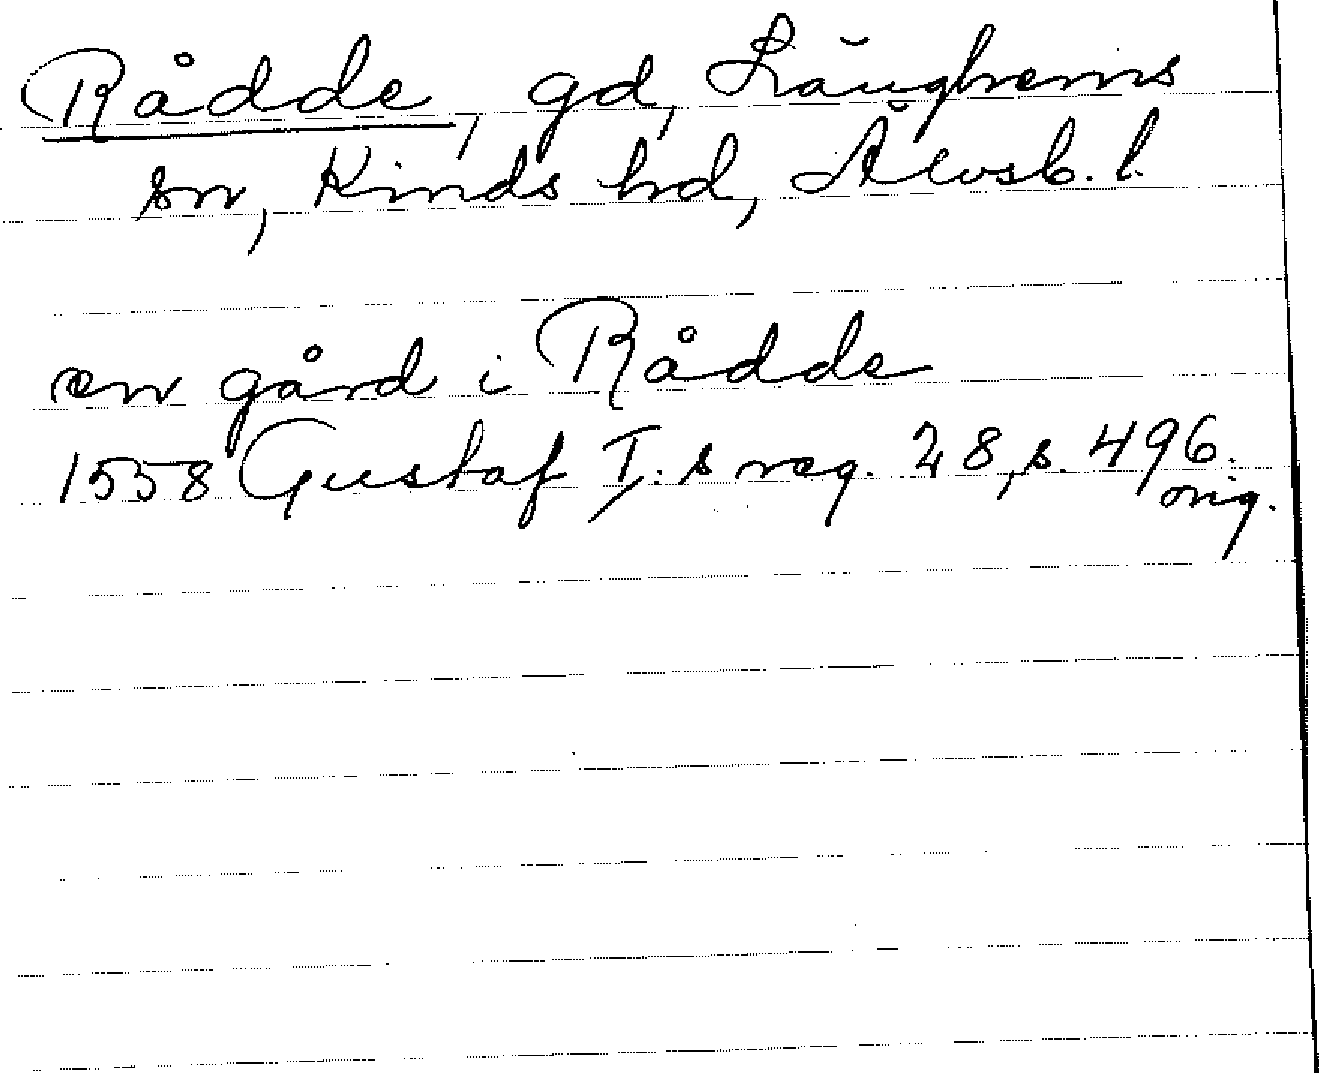 Rådde, gd, Länghems
sn, Kinds hd, Älvsb. l.
en gård i Rådde
1558 Gustaf I:s reg. 28, s. 496.
orig.